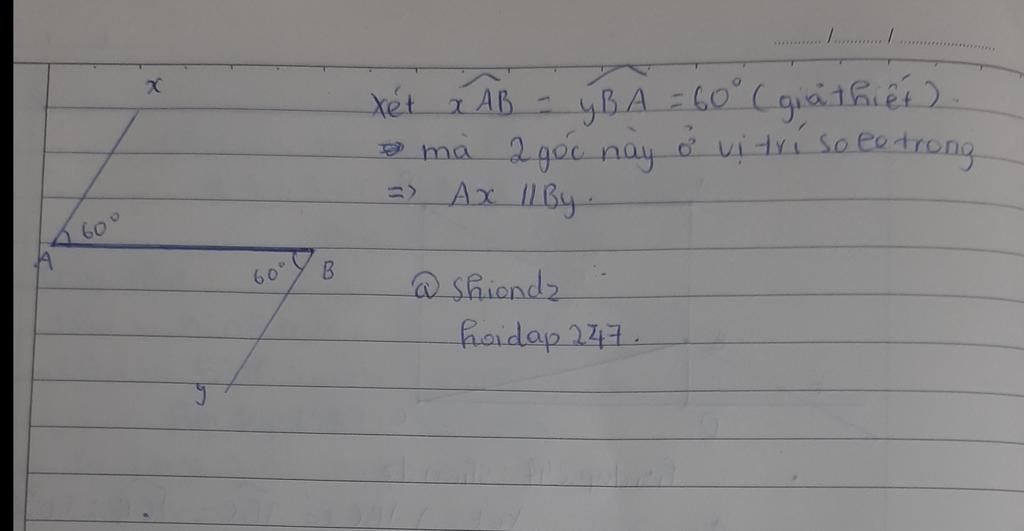 x
xét xAB = yBA = 60° (giả thiết).
mà 2 góc này ở vị trí so le trong
=> Ax // By.
60°
A
60° B
@ shiondz
hoidap 247.
y